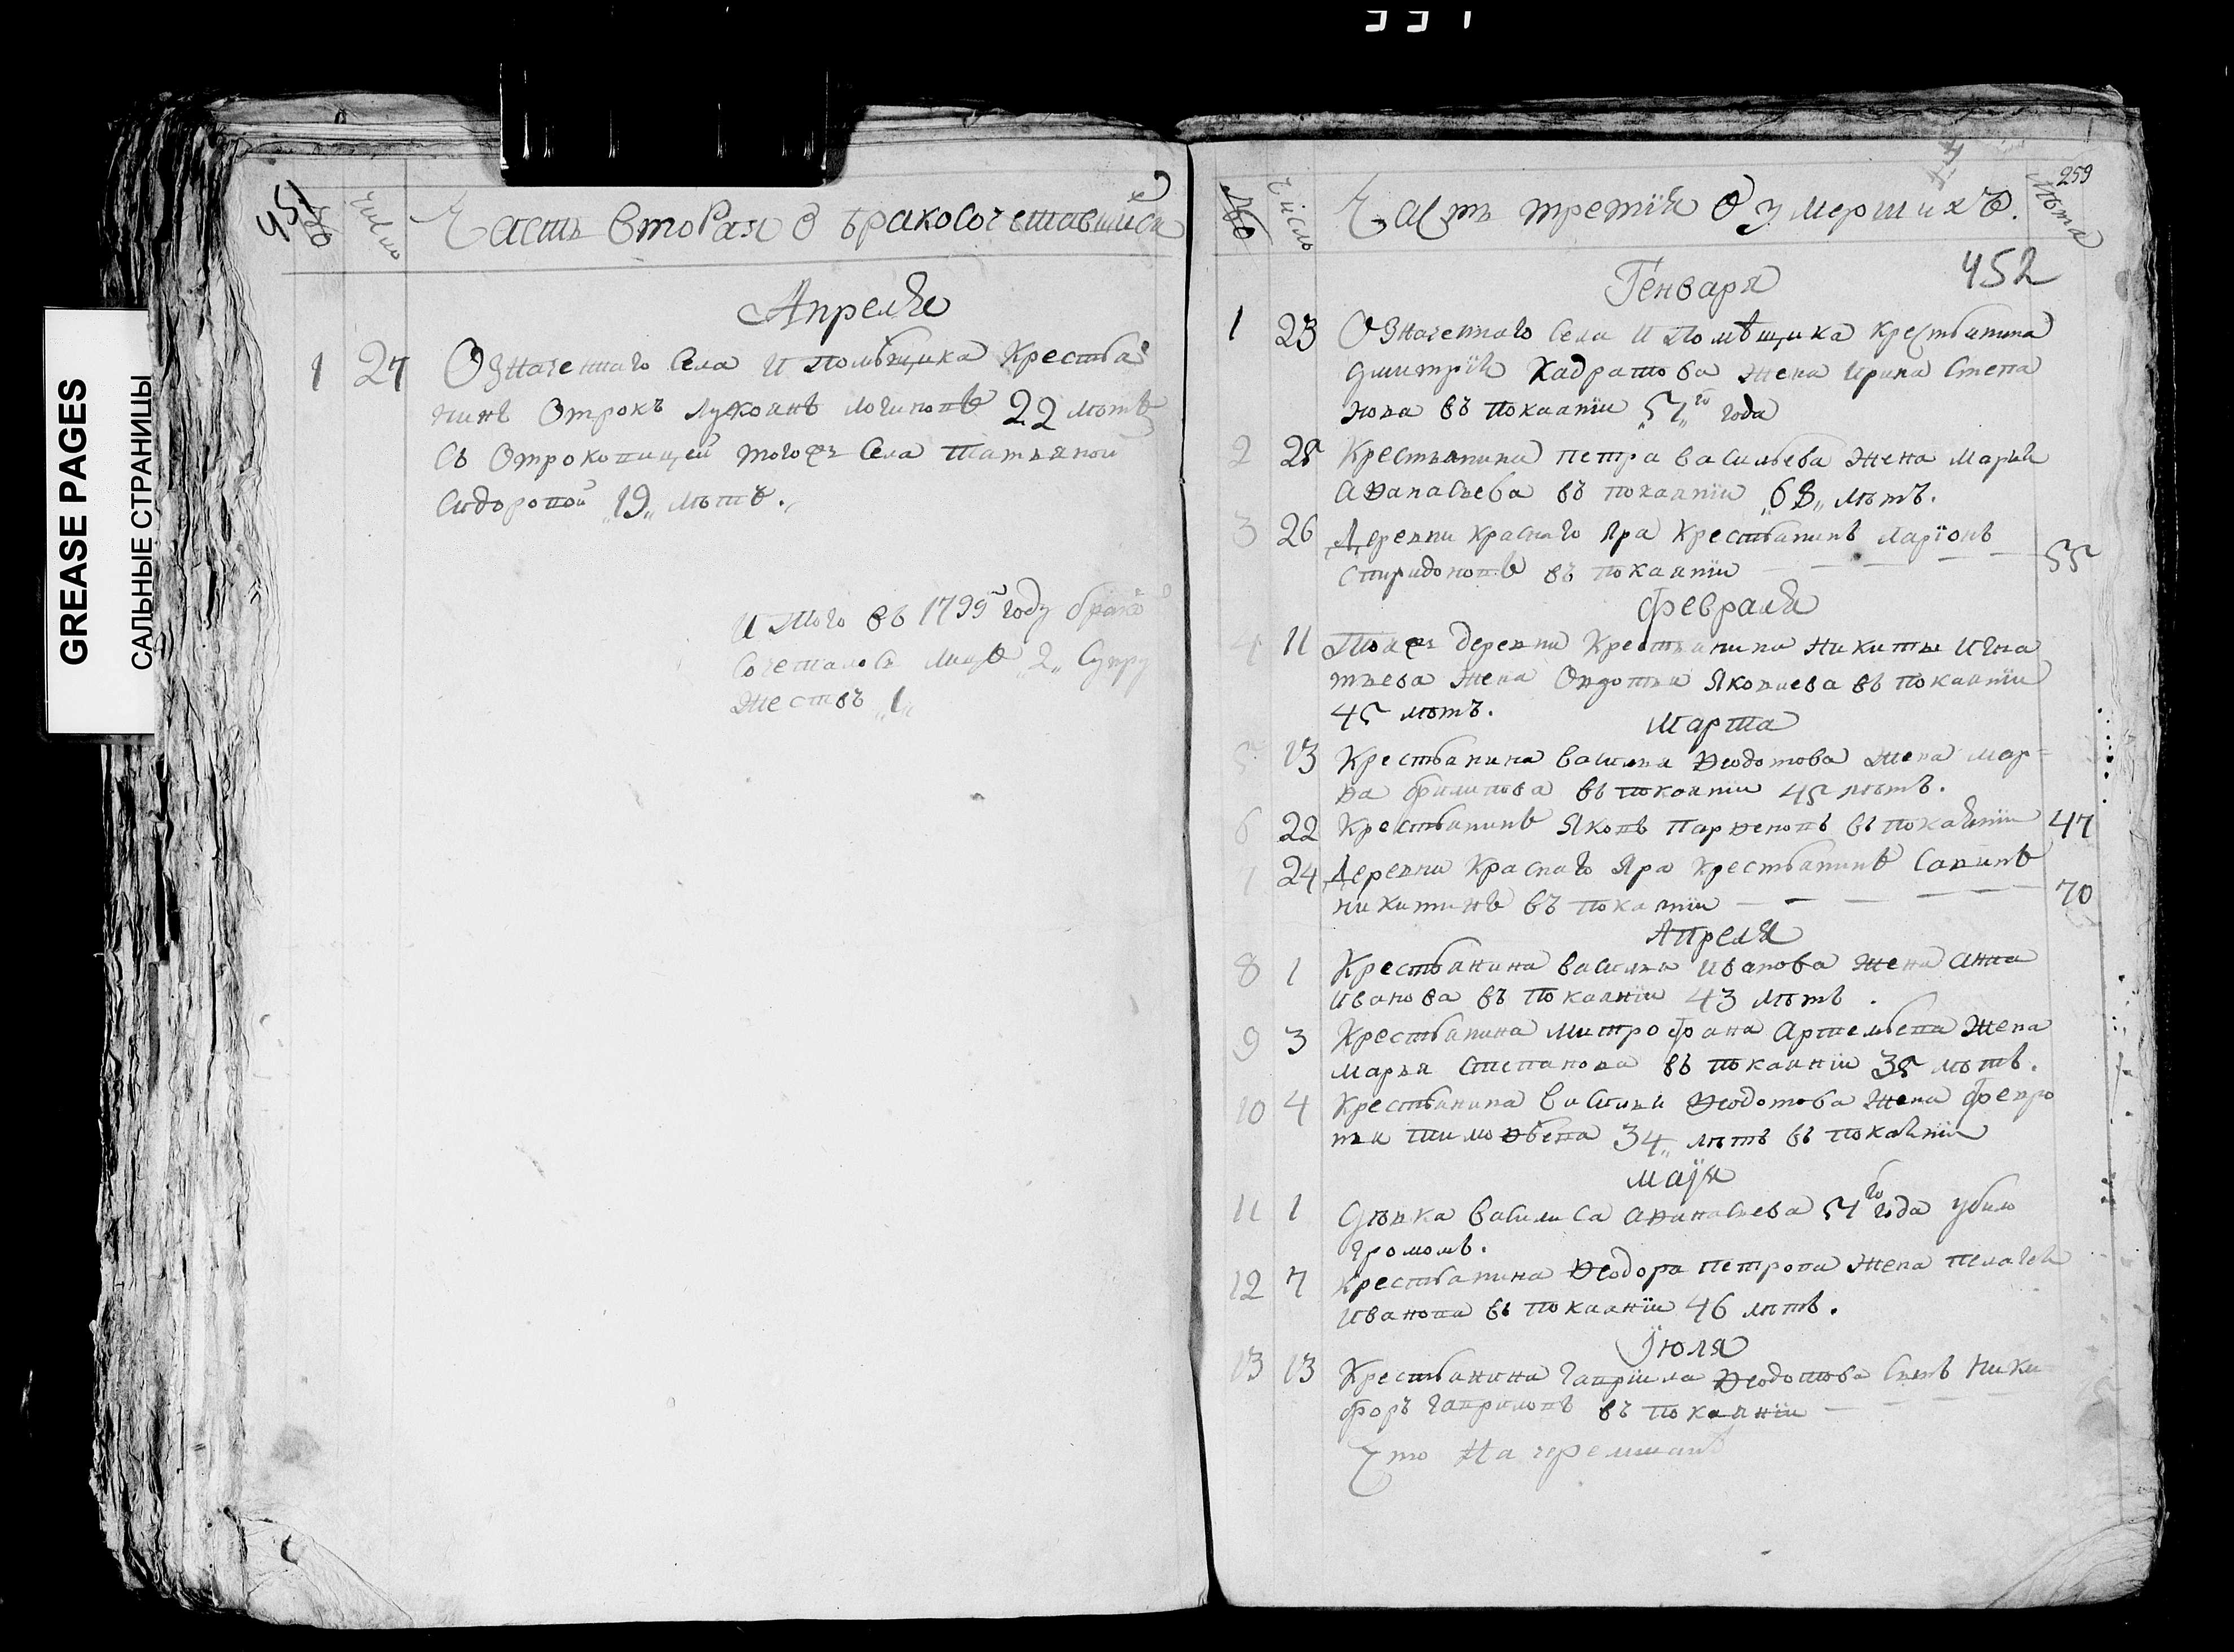 331
GREASE PAGES
САЛЬНЫЕ СТРАНИЦЫ
451
№
Число
Часть вторая О бракосочетавшихся
Апреля
1 27 Означеннаго Села И помѣщика Крестья
нинъ Отрокъ Лукоянъ Логиновъ 22 лѣтъ
Съ Отроковицей тогожъ Села Татьяной
Сидоровой „19„ лѣтъ.
И того въ 1799 году брако
Сочеталось Лицъ „2„ Супру
жествъ „1„
259
№
Число
Часть третія О умершихъ.
Лѣта
452
Генваря
1 23 Означеннаго Села И Помѣщика крестьянина
Дмитрія Кадратова жена Ирина Степа
нова въ покаяніи „57„го года
2 25 Крестьянина петра васильева жена Марья
Аѳанасьева въ покаяніи „63„ лѣтъ.
3 26 Деревни краснаго Яра Крестьянинъ Ларіонъ
Спиридоновъ въ покаяніи — — — — 55
Февраля
4 11 Тояжъ деревни Крестьянина Никиты Игна
тьева жена Овдотья Яковлева въ покаяніи
45 лѣтъ.
Марта
5 13 Крестьянина василья Ѳедотова жена мар=
ѳа филипова въ покаяніи 45 лѣтъ.
6 22 Крестьянинъ Яковъ Парѳеновъ въ покаяніи 47
7 24 Деревни Краснаго Яра Крестьянинъ Савинъ
никитинъ въ покаяніи — — — — — 70
Апреля
8 1 Крестьянина василья Иванова жена анна
Иванова въ покаяніи 43 лѣтъ.
9 3 Крестьянина митрофана Артемьева жена
марья Степанова въ покаяніи 35 лѣтъ.
10 4 Крестьянина василья Ѳедотова жена Февро
нья тимоѳѣева 34„ лѣтъ въ покаяніи
маія
11 1 Дѣвка василиса аѳанасьева 54го года убило
громомъ.
12 7 крестьянина Ѳедора петрова жена пелагея
Иванова въ покаяніи 46 лѣтъ.
Іюля
13 13 Крестьянина Гаврила Ѳедотова Сынъ Ники
форъ гавриловъ въ покаяніи — — —